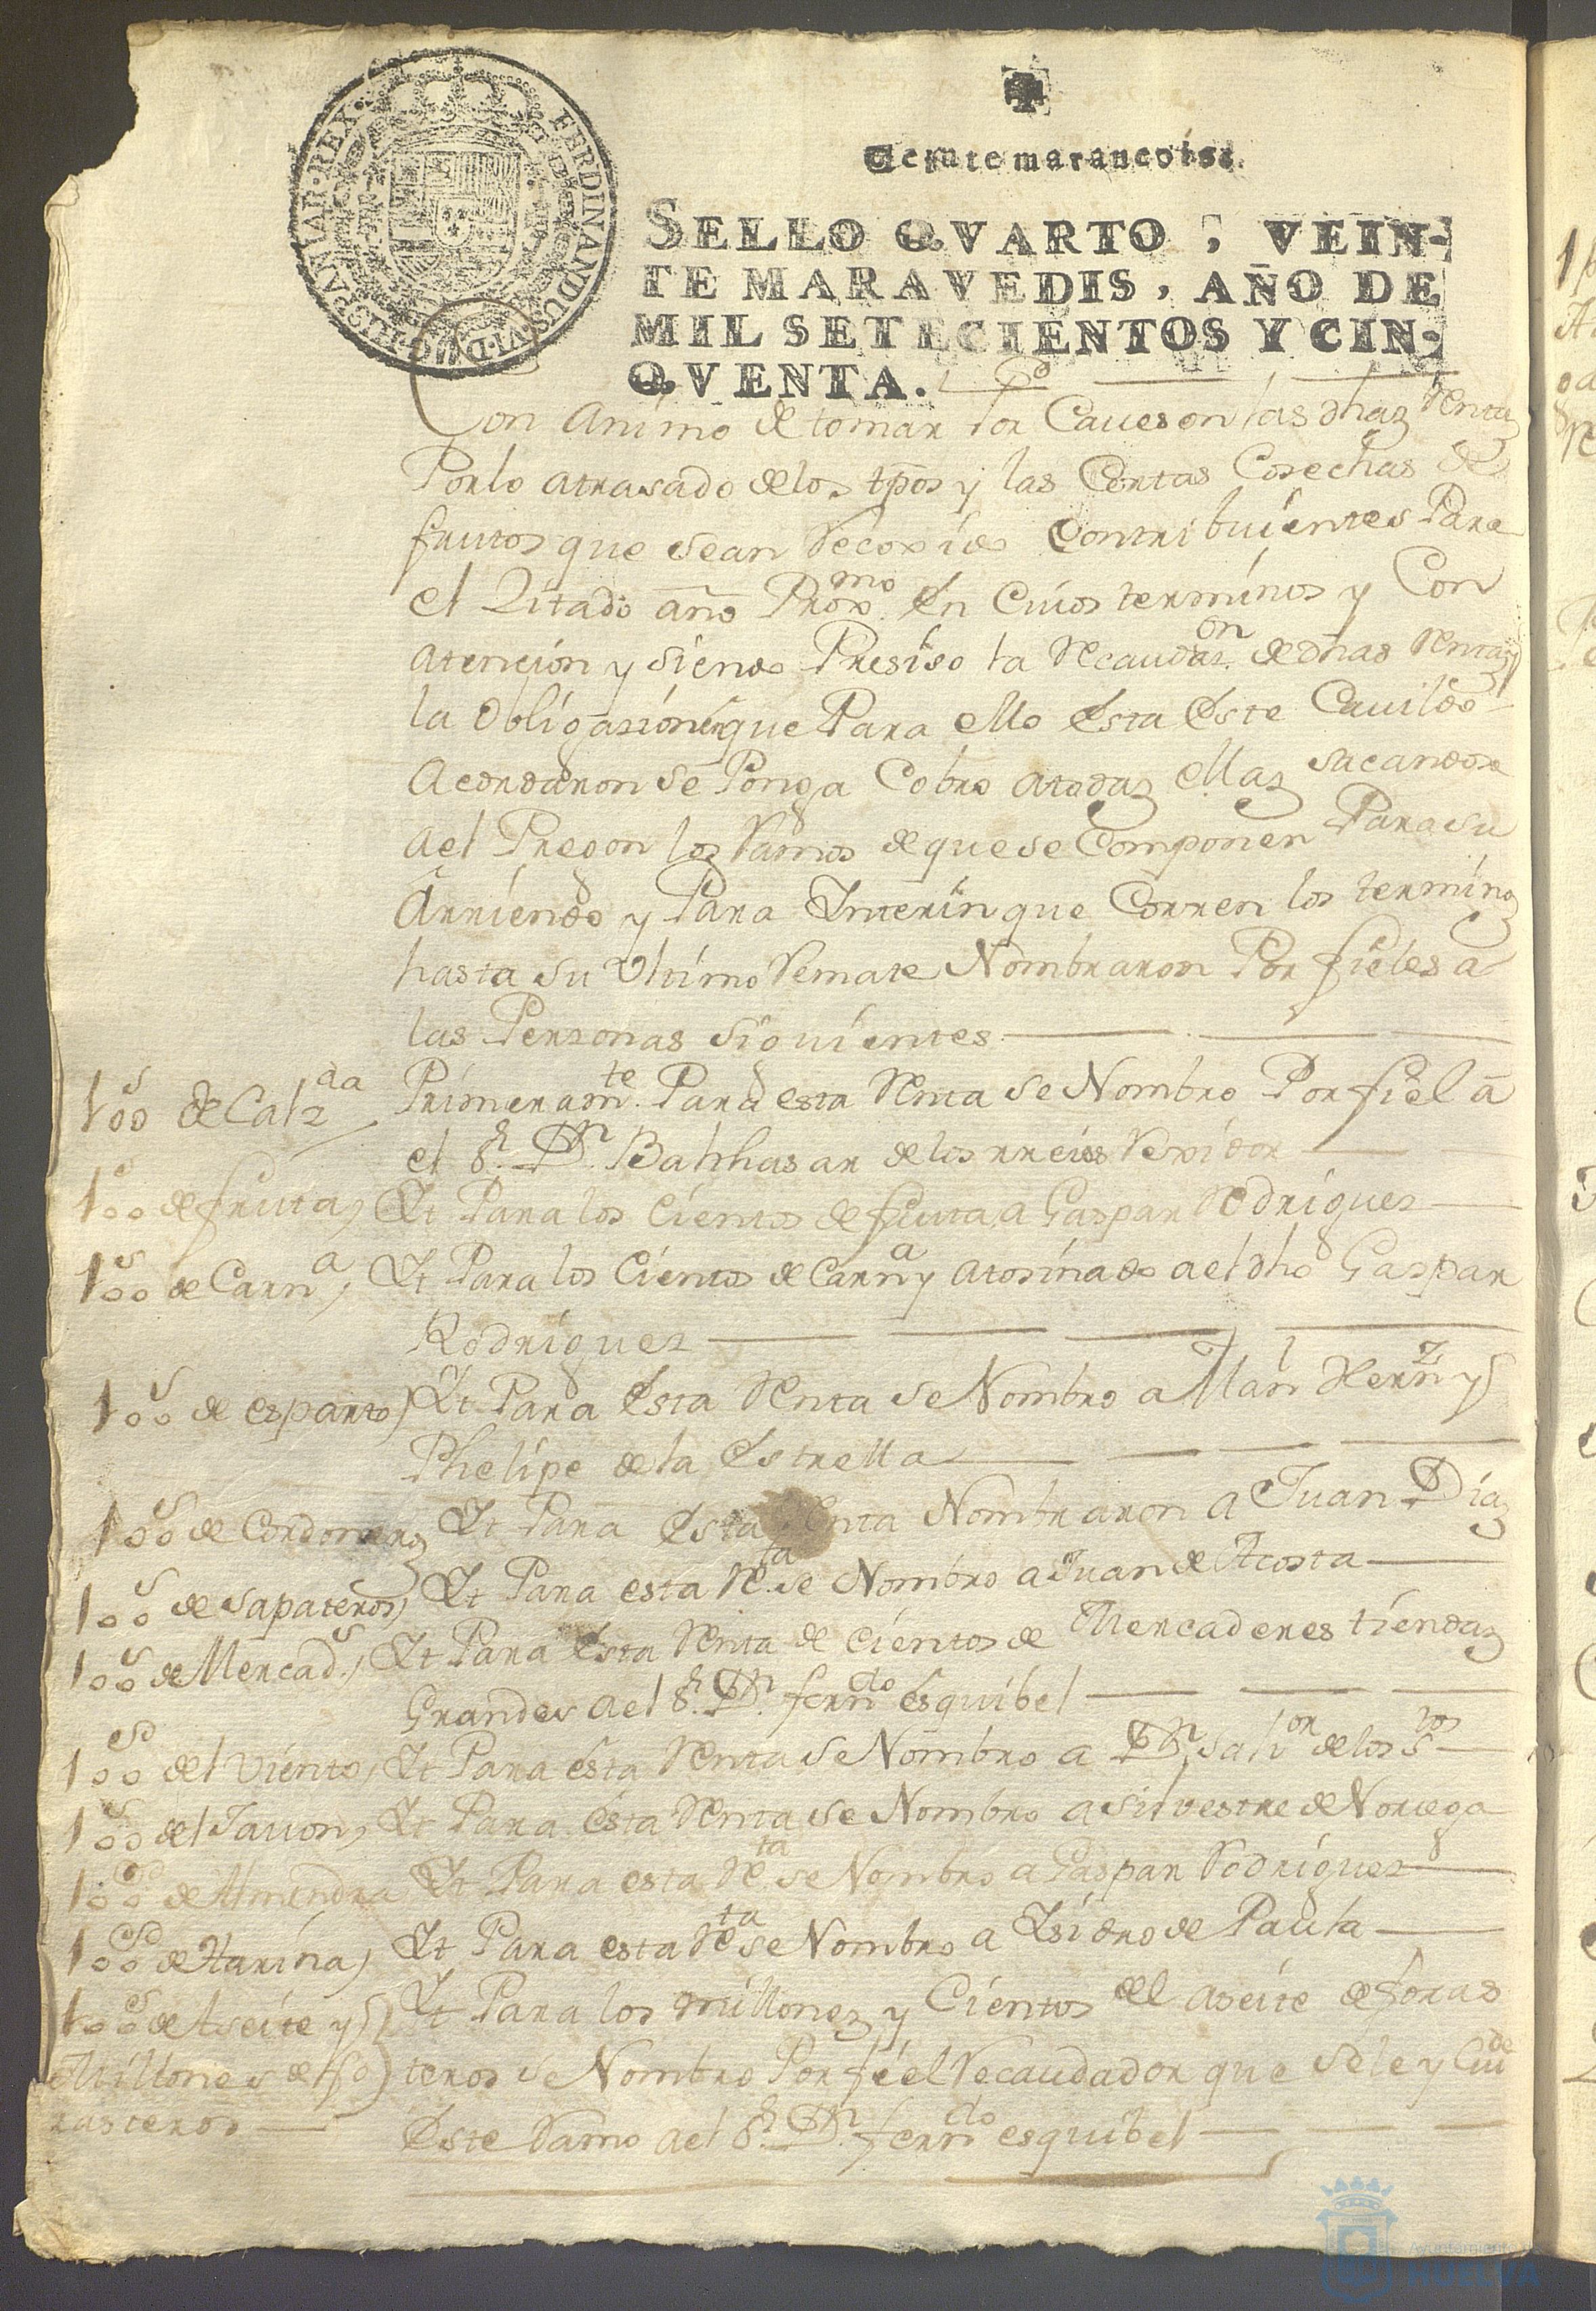 FERDINANDUS·VI·D·G·HIS·
Veinte maravedis.
SELLO QVARTO, VEIN-
TE MARAVEDIS, AÑO DE
MIL SETECIENTOS Y CIN-
QVENTA.
Con Animo de tomar por Caueson las dhas Rentas
Porlo atrasado delos tpos y las Cortas Cosechas de
frutos que sean Recoxido Contribuientes Para
el Zitado año Proxmo En Cuios terminos y Con
Atencion y siendo Presiso la Recaudaon de dhas Rentas y
la Obligazion en que Para ello Esta Este Cauildo
Acordaron se Ponga Cobro atodas ellas sacandose
ael Pregon los Ramos de que se Componen Para su
Arriendo y Para Ynterin que Corren los terminos
hasta su Vltimo Remate Nombraron Por fieles a
las Perzonas siguientes
100s de Calzda
Primeramte Para esta Renta se Nombro Por fiel a
el Sr. Dn. Balthasar de los rreies Rexidor
100s de fruta,
Yt Para los Cientos de fruta, a Gaspar Rodriguez
100s de Carna,
Yt Para los Cientos de Carna y atosinado ael dho Gaspar
Rodriguez
100s de esparto,
Yt Para Esta Renta se Nombro a Man Hernz y
Phelipe de la Estrella
100s de Cordoneros
Yt Para Esta Renta Nombraron a Juan Diaz
100s de sapateros,
Yt Para esta Rta se Nombro a Juan de Acosta
100s de Mercads,
Yt Para Esta Renta de Cientos de Mercaderes tiendas
Grandes ael Sr. Dn. ferndo esquibel
100s del Viento,
Yt Para esta Renta se Nombro a Dn Salvor de los Stos
100s del Jauon,
Yt Para Esta Renta se Nombro a Silvestre de Noriega
100s de Almendra
Yt Para esta Rta se Nombro a Gaspar Rodriguez
100s de Harina,
Yt Para esta Rta se Nombro a Ysidro de Paula
100s de Aseite y
Millones de fo
rasteros
Yt Para los millones y Cientos del aseite de foras
teros se Nombro Por fiel Recaudador que sele y Cuide
Este Ramo ael Sr. Dn. ferndo esquibel
Ayuntamiento
HUELVA